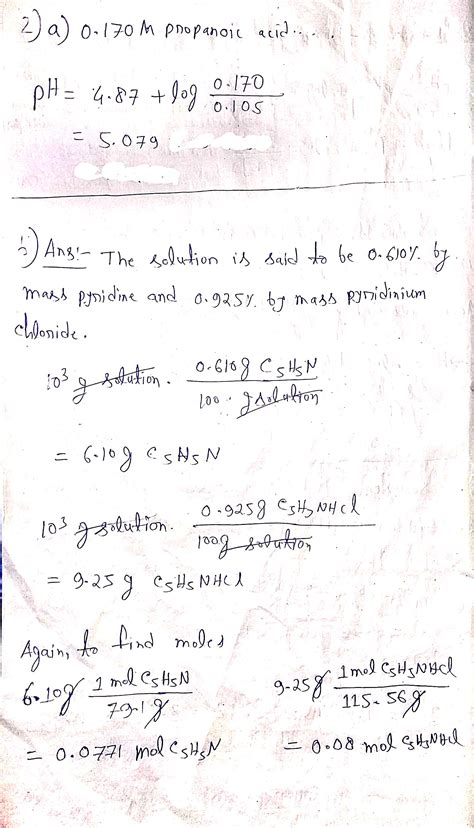 2) a) 0.170 M propanoic acid....
pH = 4.87 + log 0.170/0.105
= 5.079
Ans:- The solution is said to be 0.610% by
mass pyridine and 0.925% by mass pyridinium
chloride.
10³ g solution. 0.610g C5H5N / 100. g solution
= 6.10g C5H5N
10³ g solution. 0.925g C5H5NHCl / 100g solution
= 9.25 g C5H5NHCl
Again, to find moles
6.10g 1 mol C5H5N / 79.1g 9.25g 1 mol C5H5NHCl / 115.56g
= 0.0771 mol C5H5N = 0.08 mol C5H5NHCl